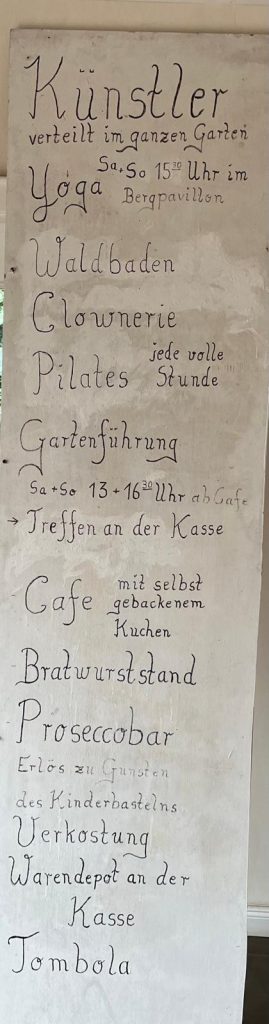 Künstler
verteilt im ganzen Garten
Yoga Sa+So 15³⁰ Uhr im
Bergpavillon
Waldbaden
Clownerie
Pilates jede volle
Stunde !!!
Gartenführung
Sa+So 13+16³⁰ Uhr ab Cafe
→ Treffen an der Kasse
Cafe mit selbst
gebackenem
Kuchen
Bratwurststand
Proseccobar
Erlös zu Gunsten
des Kinderbastelns
Verkostung
Warendepot an der
Kasse
Tombola